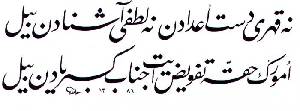 نه قهری دست اعدادن نه لطفی آشنادن بیل
امورک حقه تفویض ایت جناب کبریادن بیل